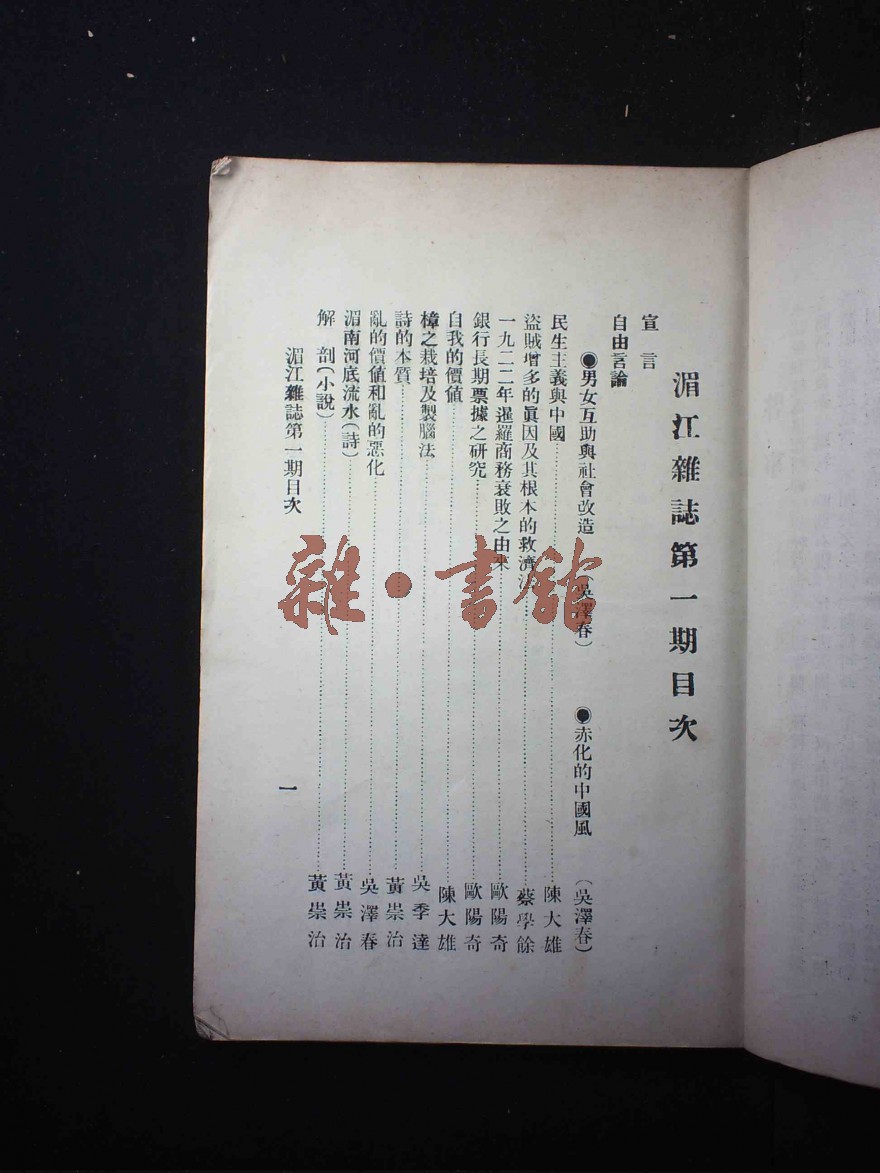 湄江雜誌第一期目次
宣言
自由言論
◉男女互助與社會改造（吳澤春） ◉赤化的中國風（吳澤春）
民生主義與中國……陳大雄
盜賊增多的眞因及其根本的救濟法……蔡學餘
一九二二年暹羅商務衰敗之由來……歐陽奇
銀行長期票據之研究……歐陽奇
自我的價値……陳大雄
樟之栽培及製腦法……吳季達
詩的本質……黃崇治
亂的價値和亂的惡化……吳澤春
湄南河底流水（詩）……黃崇治
解剖（小說）……黃崇治
湄江雜誌第一期目次
一
雜·書館